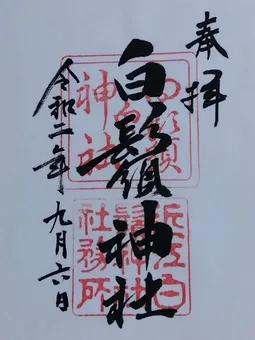 奉拝
白鬚神社
令和二年九月六日
白鬚神社
近江白鬚神社社務所